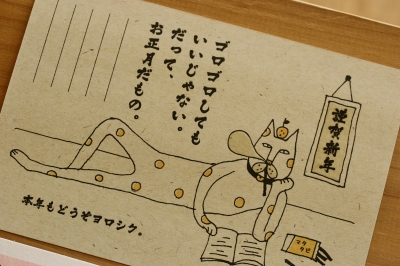 ゴロゴロしても
いいじゃない。
だって、
お正月だもの。
謹賀新年
本年もどうぞヨロシク。
マタ
タビ